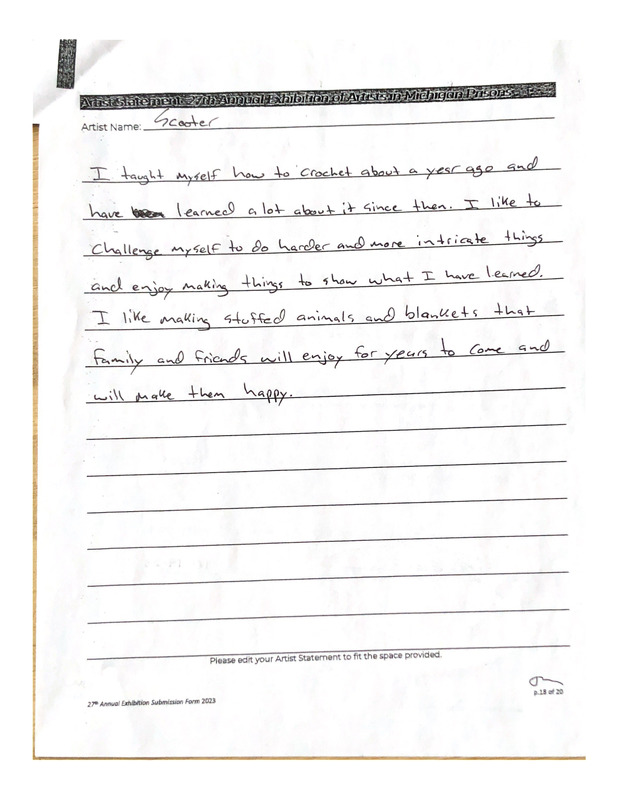 Artist Statement 27th Annual Exhibition of Artists in Michigan Prisons
Artist Name: Scooter
I taught myself how to crochet about a year ago and
have learned a lot about it since then. I like to
challenge myself to do harder and more intricate things
and enjoy making things to show what I have learned.
I like making stuffed animals and blankets that
family and friends will enjoy for years to come and
will make them happy.
Please edit your Artist Statement to fit the space provided.
p.18 of 20
27th Annual Exhibition Submission Form 2023